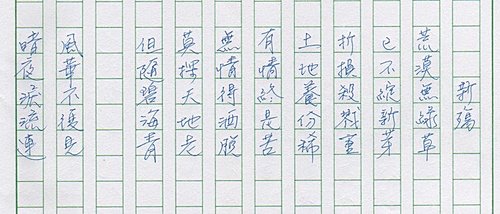 新殤
荒漠無綠草
已不綻新芽
折損殺戮重
土地養份稀
有情終是苦
無情得洒脫
莫天地老
但隨碧海青
風華不復見
晴夜淚流連